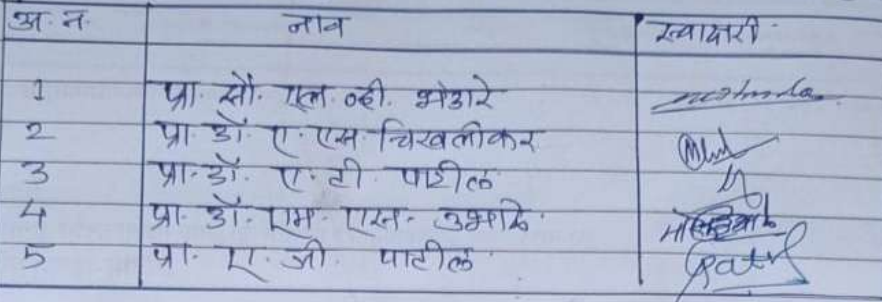 अ. न. नाव स्वाक्षरी
1 प्रा. सौ. एल. व्ही. भेंडारे
2 प्रा. डॉ. ए. एस. चिखलीकर
3 प्रा. डॉ. ए. टी. पाटील
4 प्रा. डॉ. एम. एस.
5 प्रा. ए. जी. पाटील